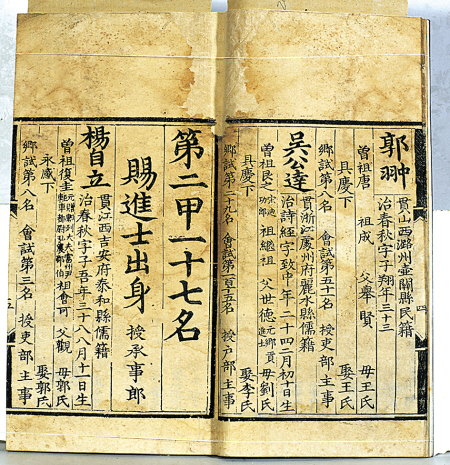 郭翀
貫山西潞州壺關縣民籍
治春秋字子翔年三十三
曾祖唐 祖成 父舉賢 母王氏
具慶下 娶王氏
鄉試第八名 會試第五十名 授吏部主事
吳公達
貫浙江處州府麗水縣儒籍
治詩經字致中年二十四二月初十日生
曾祖艮之 宋迪功郎 祖繼祖 父世德 元鄉貢進士 母劉氏
具慶下 娶李氏
鄉試第二十九名 會試第一百十五名 授戶部主事
四
第二甲一十七名
賜進士出身 授承事郎
楊自立
貫江西吉安府泰和縣儒籍
治春秋字子吾年三十八八月十一日生
曾祖復圭 祖會可 父觀 母郭氏
永感下 娶郭氏
鄉試第八名 會試第三名 授吏部主事
五